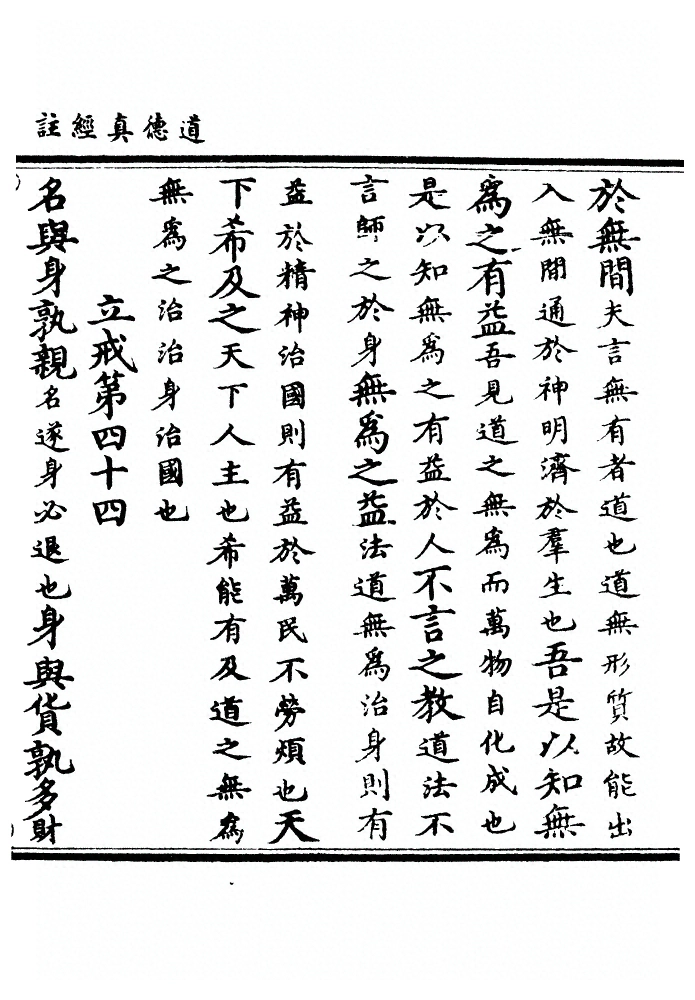 道德真經註
於無間夫言無有者道也道無形質故能出
入無間通於神明濟於羣生也吾是以知無
爲之有益吾見道之無爲而萬物自化成也
是以知無爲之有益於人不言之教道法不
言師之於身無爲之益法道無爲治身則有
益於精神治國則有益於萬民不勞煩也天
下希及之天下人主也希能有及道之無爲
無爲之治治身治國也
立戒第四十四
名與身孰親名遂身必退也身與貨孰多財